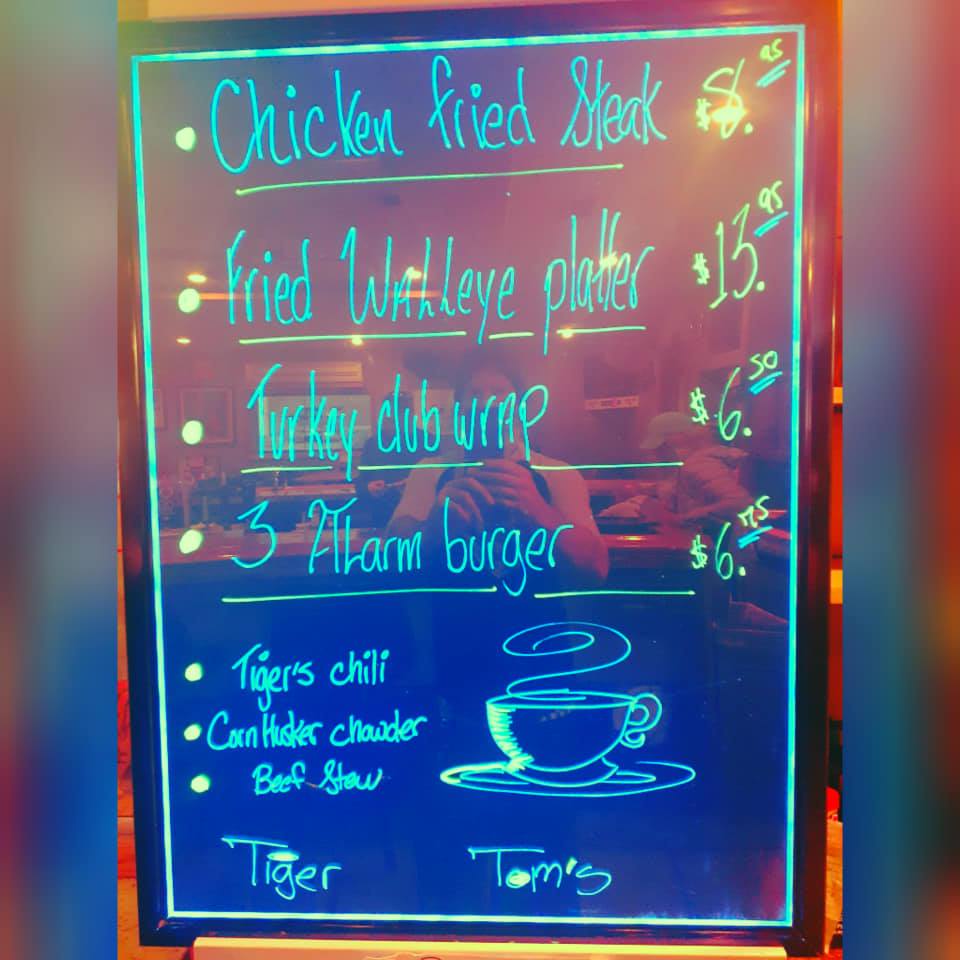 Chicken fried Steak $8.95
Fried Walleye platter $13.95
Turkey club wrap $6.50
3 Alarm burger $6.75
Tiger's chili
Corn Husker chowder
Beef Stew
Tiger Tom's